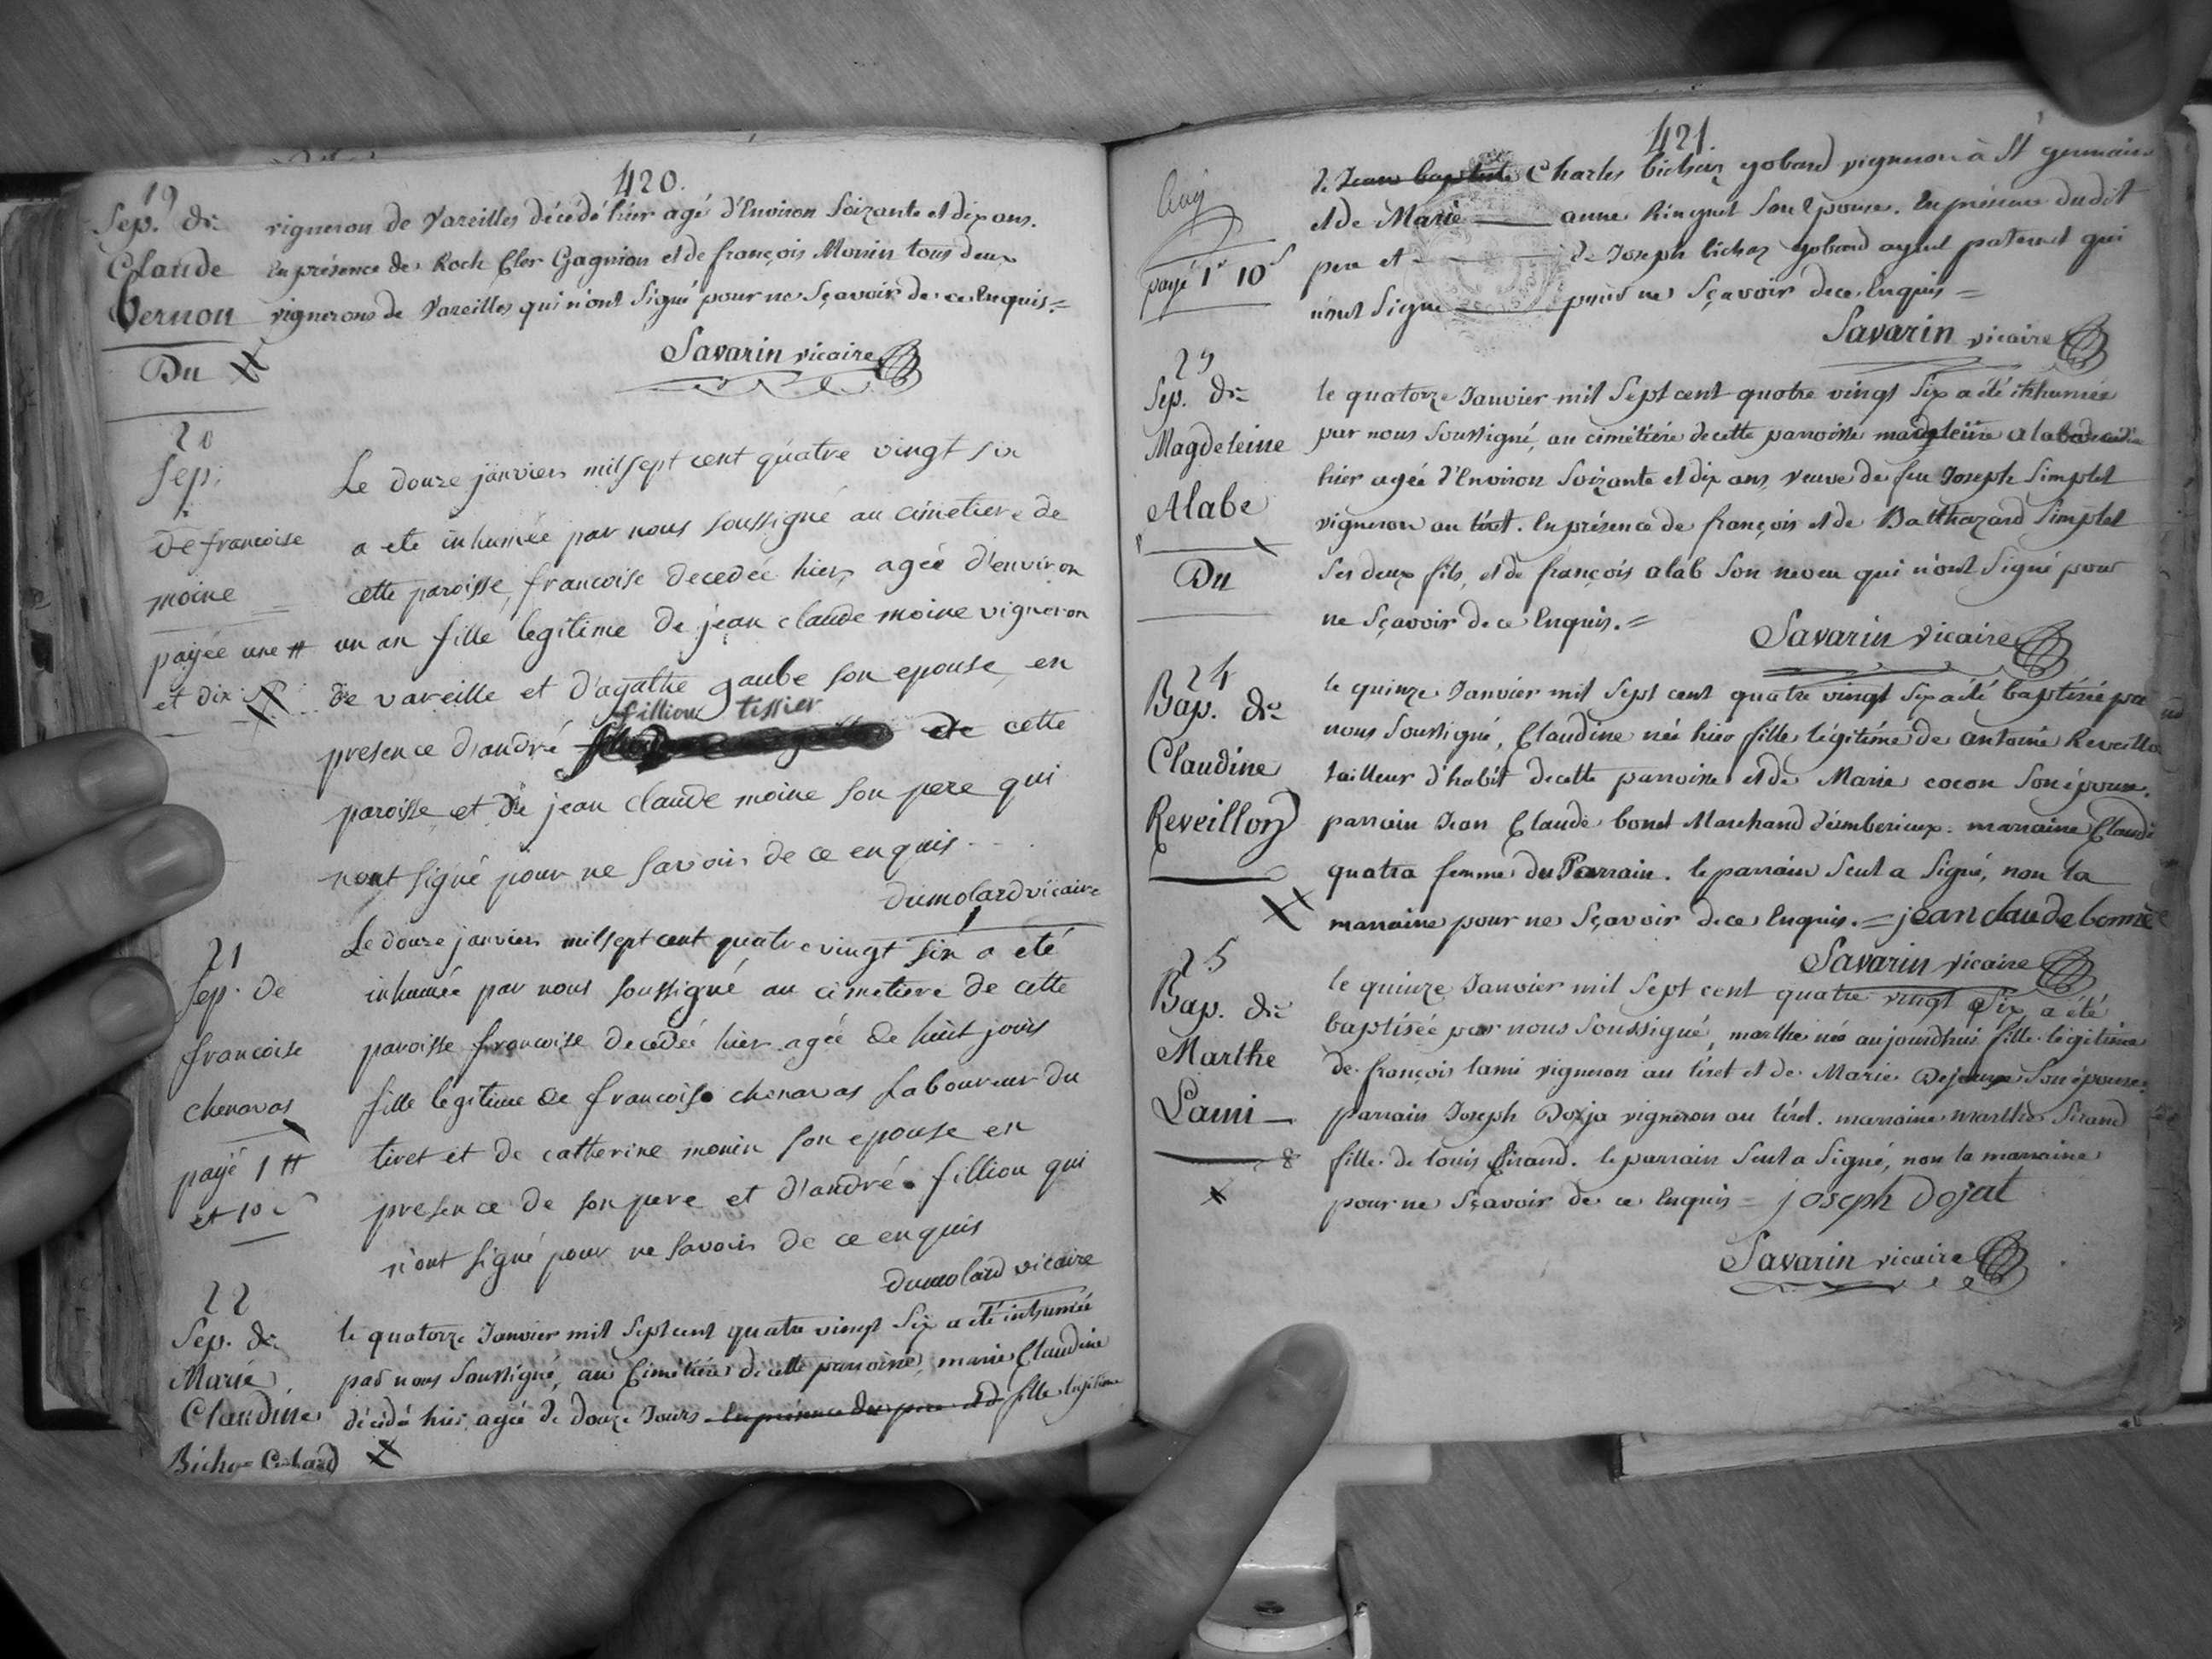 420.
19
Sep. de
Claude
Vernon
Du
vigneron de Vareilles décédé hier agé d'Environ Soixante et dix ans.
En présence de Roch Cler Gagnion et de françois Monin tous deux
vignerons de Vareilles qui n'ont Signé pour ne Sçavoir de ce Enquis. =
Savarin vicaire
20
Sep.
de francoise
moine
payée une ₶
et dix s
Le douze janvier mil sept cent quatre vingt six
a eté inhumée par nous soussigné au cimetiere de
cette paroisse, francoise decedée hier, agée d'environ
un an fille legitime de jean claude moine vigneron
de vareille et d'agathe gaube son epouse, en
fillion tissier
presence d'andré de cette
paroisse et de jean claude moine son pere qui
n'ont signé pour ne savoir de ce enquis
dumolard vicaire
21
sep. de
francoise
chenavas
payé 1 ₶
et 10 s
Le douze janvier mil sept cent quatre vingt six a eté
inhumée par nous soussigné au cimetiere de cette
paroisse francoise decedée hier agée de huit jours
fille legitime de francois chenavas laboureur du
tiret et de catherine monin son epouse en
presence de son pere et d'andré fillion qui
n'ont signé pour ne savoir de ce enquis
dumolard vicaire
22
Sep. de
Marie
Claudine
Bichon Gobard
le quatorze Janvier mil Sept cent quatre vingt Six a été inhumée
par nous Soussigné, au Cimétière de cette parroisse, marie Claudine
décédé hier, agée de douze Jours en présence du pere et d fille legitime
421.
payé 1₶ 10s
de Jean baptiste Charles bichon gobard vigneron à St germain
et de Marie anne Ringuet Son Epouse. En présence dudit
pere et de Joseph bichon gobard ayeul paternel qui
n'ont Signé pour ne Sçavoir de ce Enquis =
Savarin vicaire
23
Sep. de
Magdeleine
Alabe
Du
le quatorze Janvier mil Sept cent quatre vingt Six a été inhumée
par nous Soussigné, au cimétière de cette parroisse magdeleine alabe
hier agée d'Environ Soixante et dix ans, veuve de feu Joseph Simplet
vigneron au tiret. En présence de françois et de Balthazard Simplet
Ses deux fils, et de françois alab Son neveu qui n'ont Signé pour
ne Sçavoir de ce Enquis. =
Savarin vicaire
24
Bap. de
Claudine
Reveillon
le quinze Janvier mil Sept cent quatre vingt Six a été baptisée par
nous Soussigné, Claudine née hier fille légitime de antoine Reveillon
tailleur d'habit de cette parroisse et de Marie cocon Son épouse.
parrain Jean Claude bonet Marchand d'amberieux. marraine Claudi
quatra femme du Parrain. le parrain Seul a Signé, non la
marraine pour ne Sçavoir de ce Enquis. = jean claude bonnet
Savarin vicaire
25
Bap. de
Marthe
Lami
le quinze Janvier mil Sept cent quatre vingt Six a été
baptisée par nous Soussigné, marthe née aujourdhui fille legitime
de françois lami vigneron au tiret et de Marie Son épouse.
parrain Joseph Doxja vigneron au tiret. marraine marthe Sirand
fille de louis Sirand. le parrain Seul a Signé, non la marraine
pour ne Sçavoir de ce Enquis = joseph Dojat
Savarin vicaire